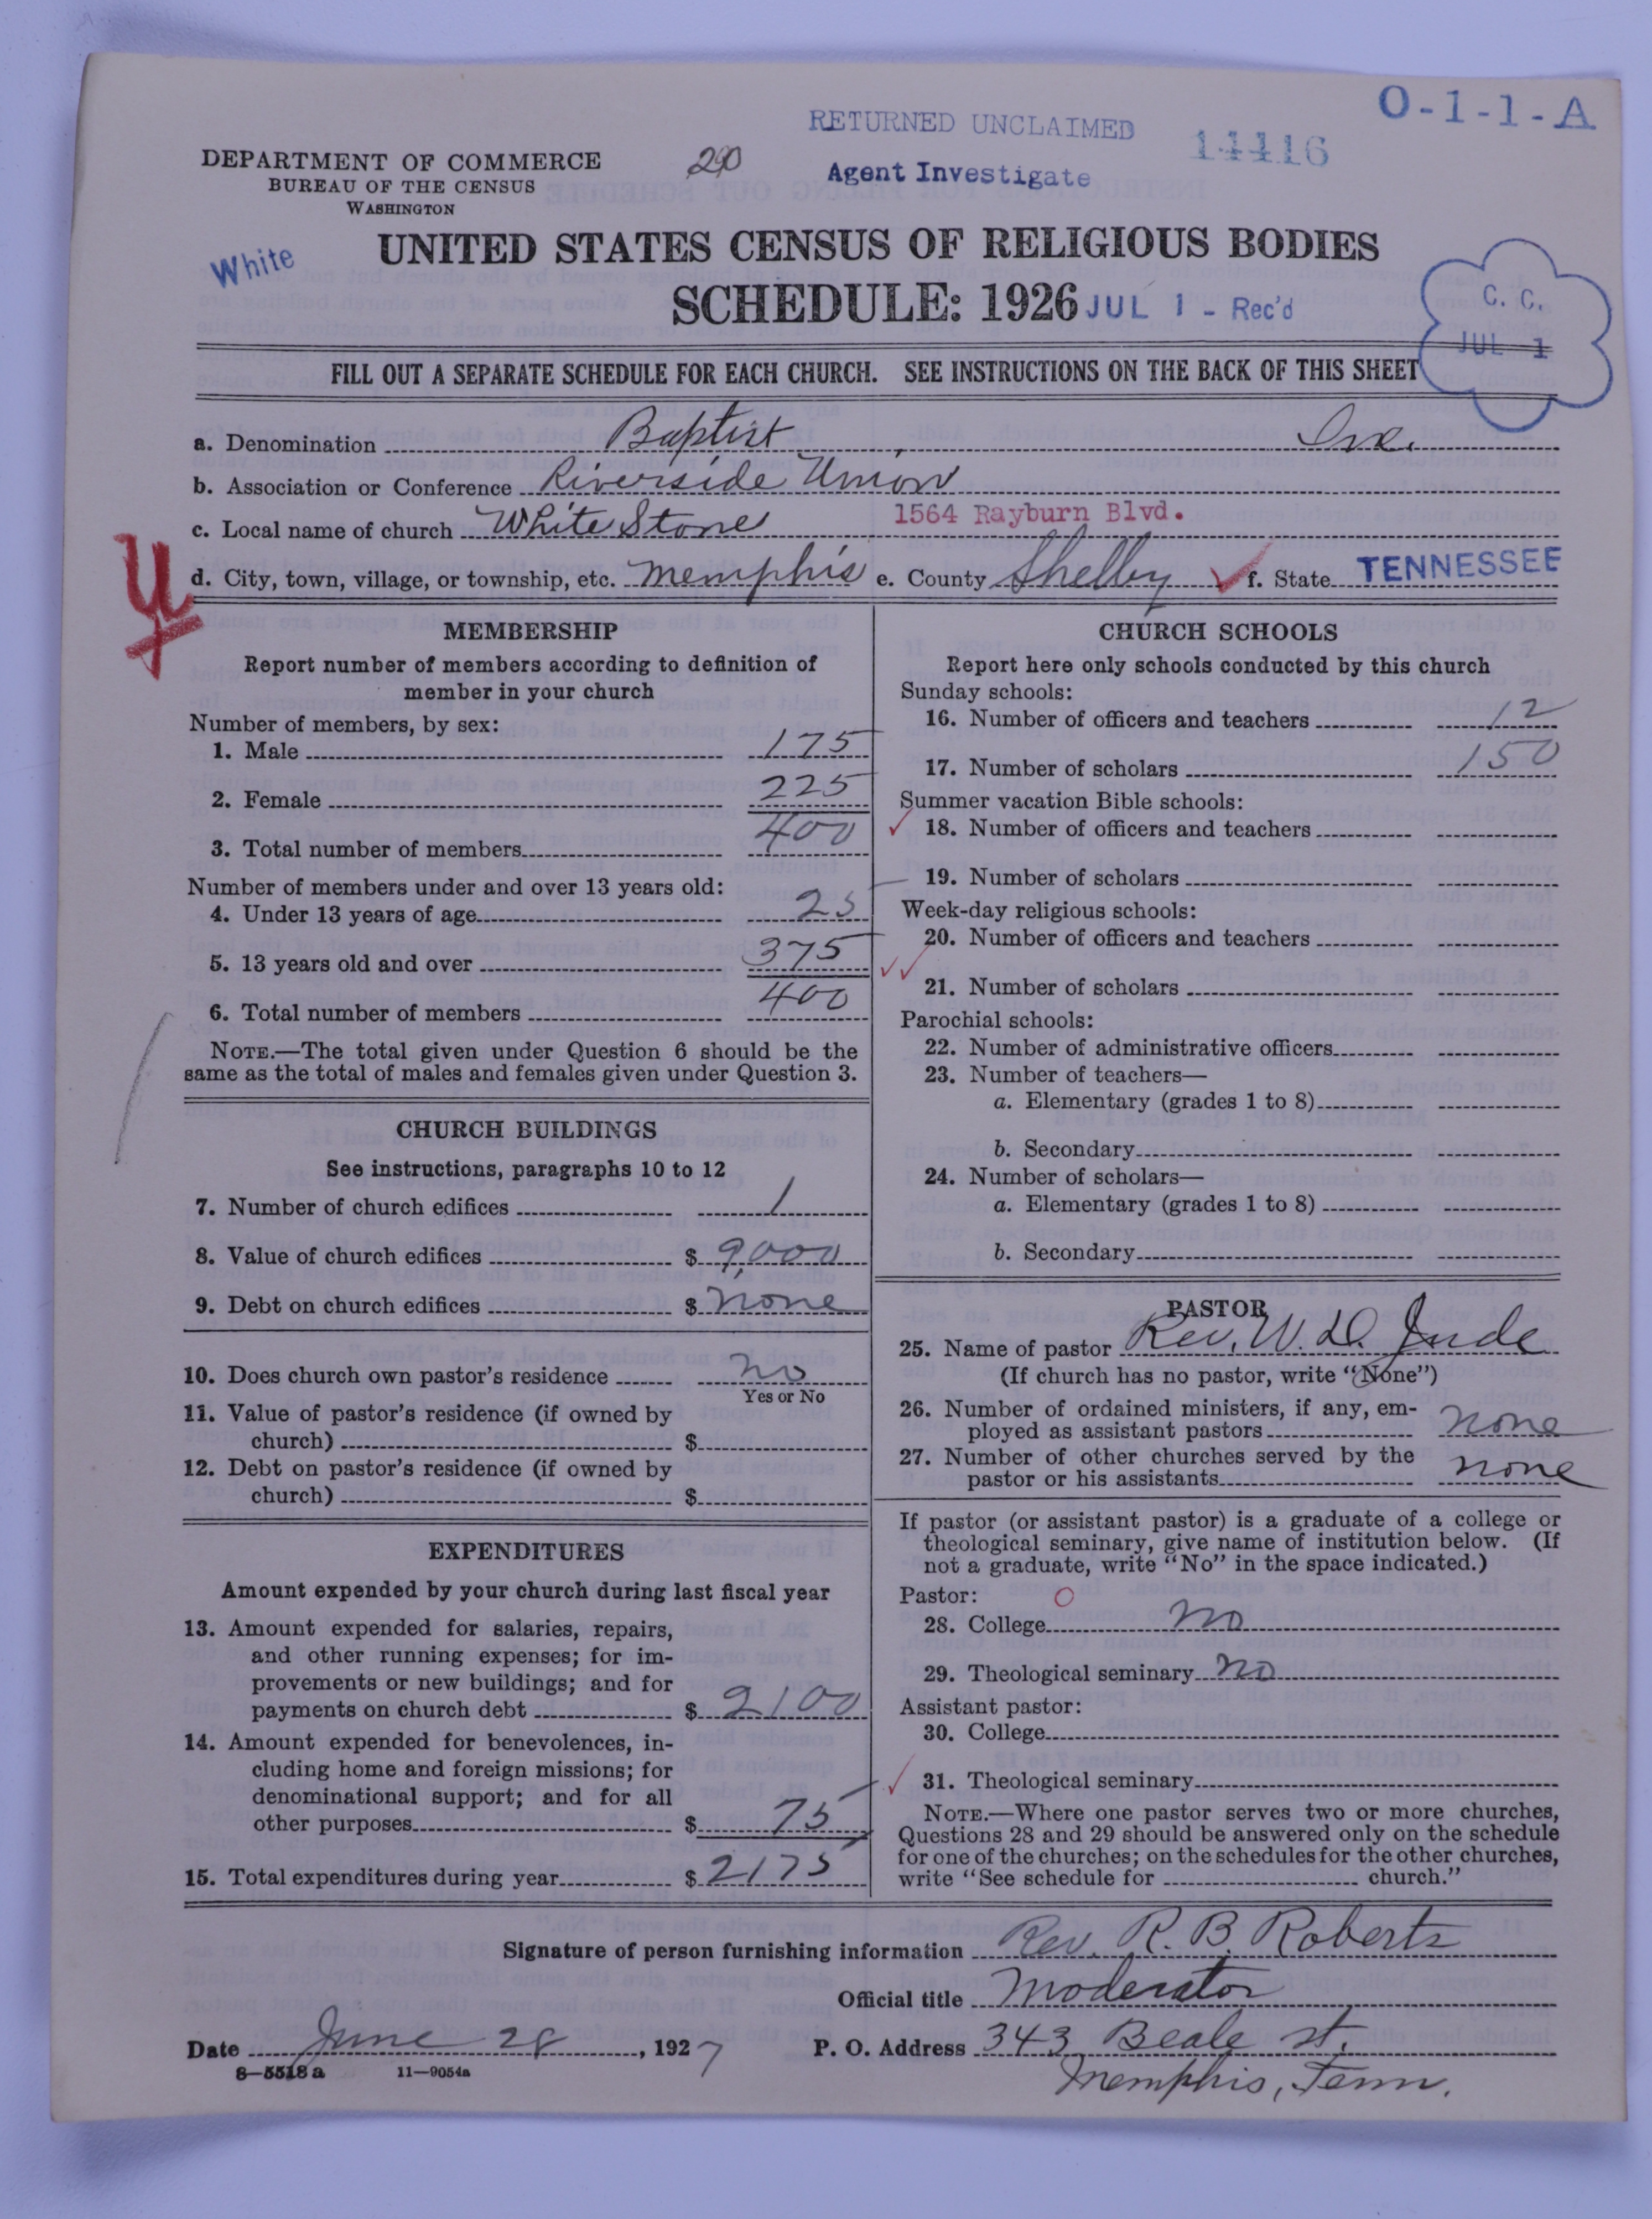 O-1-1-A
RETURNED UNCLAIMED
14416
DEPARTMENT OF COMMERCE
290
Agent Investigate
BUREAU OF THE CENSUS
WASHINGTON
White
UNITED STATES CENSUS OF RELIGIOUS BODIES
SCHEDULE: 1926 JUL 1 - Rec'd
C. C.
JUL 1
FILL OUT A SEPARATE SCHEDULE FOR EACH CHURCH. SEE INSTRUCTIONS ON THE BACK OF THIS SHEET
a. Denomination Baptist
b. Association or Conference Riverside Union
c. Local name of church White Stone 1564 Rayburn Blvd.
d. City, town, village, or township, etc. Memphis e. County Shelby f. State TENNESSEE
MEMBERSHIP
Report number of members according to definition of
member in your church
Number of members, by sex:
1. Male 175
2. Female 225
3. Total number of members 400
Number of members under and over 13 years old:
4. Under 13 years of age 25
5. 13 years old and over 375
6. Total number of members 400
NOTE.—The total given under Question 6 should be the
same as the total of males and females given under Question 3.
CHURCH BUILDINGS
See instructions, paragraphs 10 to 12
7. Number of church edifices 1
8. Value of church edifices $ 9,000
9. Debt on church edifices $ none
10. Does church own pastor's residence no
Yes or No
11. Value of pastor's residence (if owned by
church) $
12. Debt on pastor's residence (if owned by
church) $
EXPENDITURES
Amount expended by your church during last fiscal year
13. Amount expended for salaries, repairs,
and other running expenses; for im-
provements or new buildings; and for
payments on church debt $ 2100
14. Amount expended for benevolences, in-
cluding home and foreign missions; for
denominational support; and for all
other purposes $ 75
15. Total expenditures during year $ 2175
CHURCH SCHOOLS
Report here only schools conducted by this church
Sunday schools:
16. Number of officers and teachers 12
17. Number of scholars 150
Summer vacation Bible schools:
18. Number of officers and teachers
19. Number of scholars
Week-day religious schools:
20. Number of officers and teachers
21. Number of scholars
Parochial schools:
22. Number of administrative officers
23. Number of teachers—
a. Elementary (grades 1 to 8)
b. Secondary
24. Number of scholars—
a. Elementary (grades 1 to 8)
b. Secondary
PASTOR
25. Name of pastor Rev. W. D. Jude
(If church has no pastor, write "None")
26. Number of ordained ministers, if any, em-
ployed as assistant pastors none
27. Number of other churches served by the
pastor or his assistants none
If pastor (or assistant pastor) is a graduate of a college or
theological seminary, give name of institution below. (If
not a graduate, write "No" in the space indicated.)
Pastor: O
28. College No
29. Theological seminary No
Assistant pastor:
30. College
31. Theological seminary
NOTE.—Where one pastor serves two or more churches,
Questions 28 and 29 should be answered only on the schedule
for one of the churches; on the schedules for the other churches,
write "See schedule for church."
Signature of person furnishing information Rev. R. B. Roberts
Official title Moderator
Date June 28, 1927 P. O. Address 343 Beale st.
Memphis, Tenn.
8—5518a 11—9054a